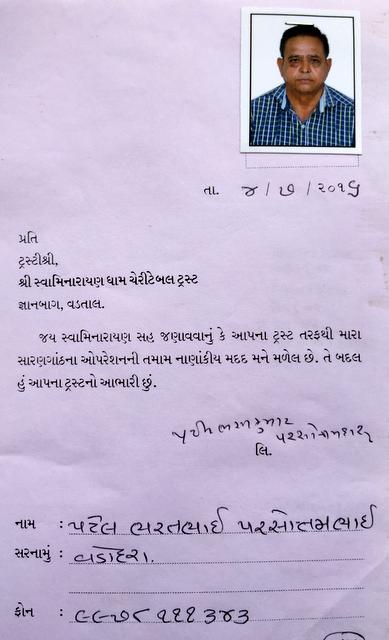 તા. ૪/૭/૨૦૧૬
પ્રતિ
ટ્રસ્ટીશ્રી,
શ્રી સ્વામિનારાયણ ધામ ચેરીટેબલ ટ્રસ્ટ
જ્ઞાનબાગ, વડતાલ.
જય સ્વામિનારાયણ સહ જણાવવાનું કે આપના ટ્રસ્ટ તરફથી મારા
સારણગાંઠના ઓપરેશનની તમામ નાણાંકીય મદદ મને મળેલ છે. તે બદલ
હું આપના ટ્રસ્ટનો આભારી છું.
લિ.
નામ : પટેલ ભરતભાઈ પરસોતમભાઈ
સરનામું : વડોદરા.
ફોન : ૯૯૭૮ ૧૧૧ ૩૪૩